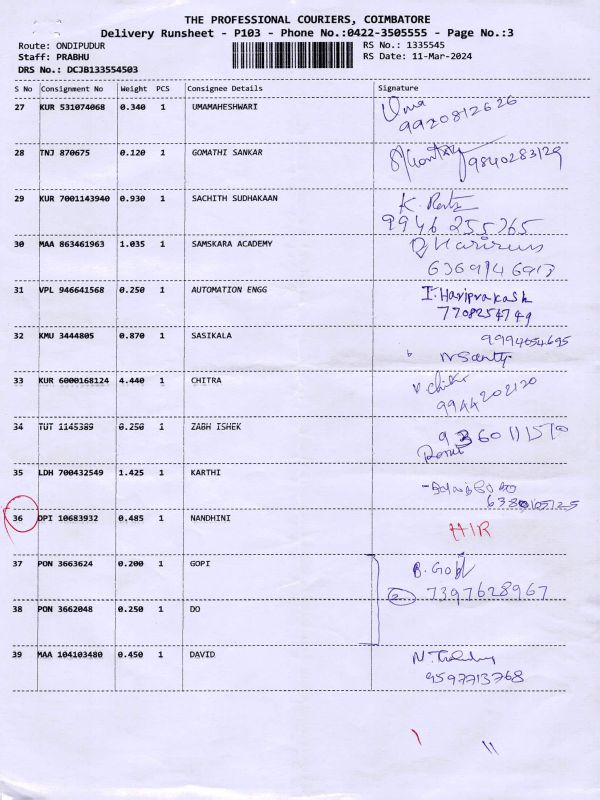 THE PROFESSIONAL COURIERS, COIMBATORE
Delivery Runsheet - P103 - Phone No.:0422-3505555 - Page No.:3
Route: ONDIPUDUR RS No.: 1335545
Staff: PRABHU RS Date: 11-Mar-2024
DRS No.: DCJB133554503
S No Consignment No Weight PCS Consignee Details Signature
27 KUR 531074068 0.340 1 UMAMAHESHWARI Uma
9920812626
28 TNJ 870675 0.120 1 GOMATHI SANKAR 9840283129
29 KUR 7001143940 0.930 1 SACHITH SUDHAKAAN K.
9946 255765
30 MAA 863461963 1.035 1 SAMSKARA ACADEMY
6369146913
31 VPL 946641568 0.250 1 AUTOMATION ENGG I. Hariprakash
7708254749
32 KMU 3444805 0.870 1 SASIKALA 9994054695
33 KUR 6000168124 4.440 1 CHITRA
9944202120
34 TUT 1145389 0.250 1 ZABH ISHEK 9360111570
35 LDH 700432549 1.425 1 KARTHI
6380105125
36 DPI 10683932 0.485 1 NANDHINI HIR
37 PON 3663624 0.200 1 GOPI B. Gopi
2 7397628967
38 PON 3662048 0.250 1 DO
39 MAA 104103480 0.450 1 DAVID
9597713768